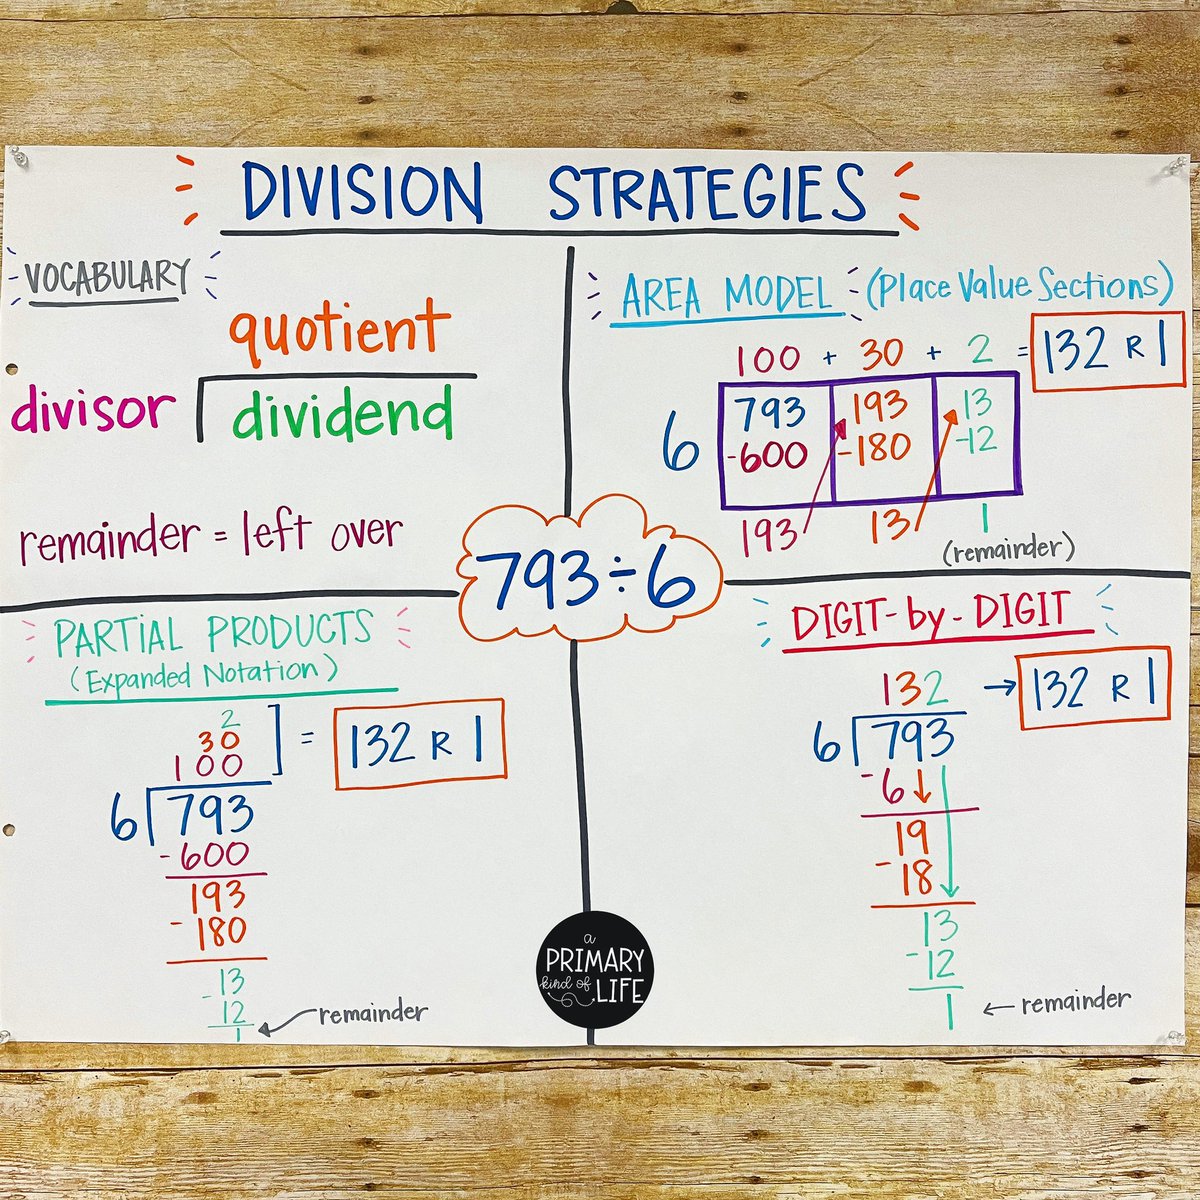 DIVISION STRATEGIES
VOCABULARY
quotient
divisor dividend
remainder = left over
AREA MODEL (Place Value Sections)
100 + 30 + 2 = 132 R 1
6
793 193 13
-600 -180 -12
193 13 1
(remainder)
793÷6
PARTIAL PRODUCTS
(Expanded Notation)
2
30
100
= 132 R 1
6 793
-600
193
-180
13
-12
1 remainder
DIGIT-by-DIGIT
132 → 132 R 1
6 793
-6
19
-18
13
-12
1 ← remainder
a
PRIMARY
kind of LIFE